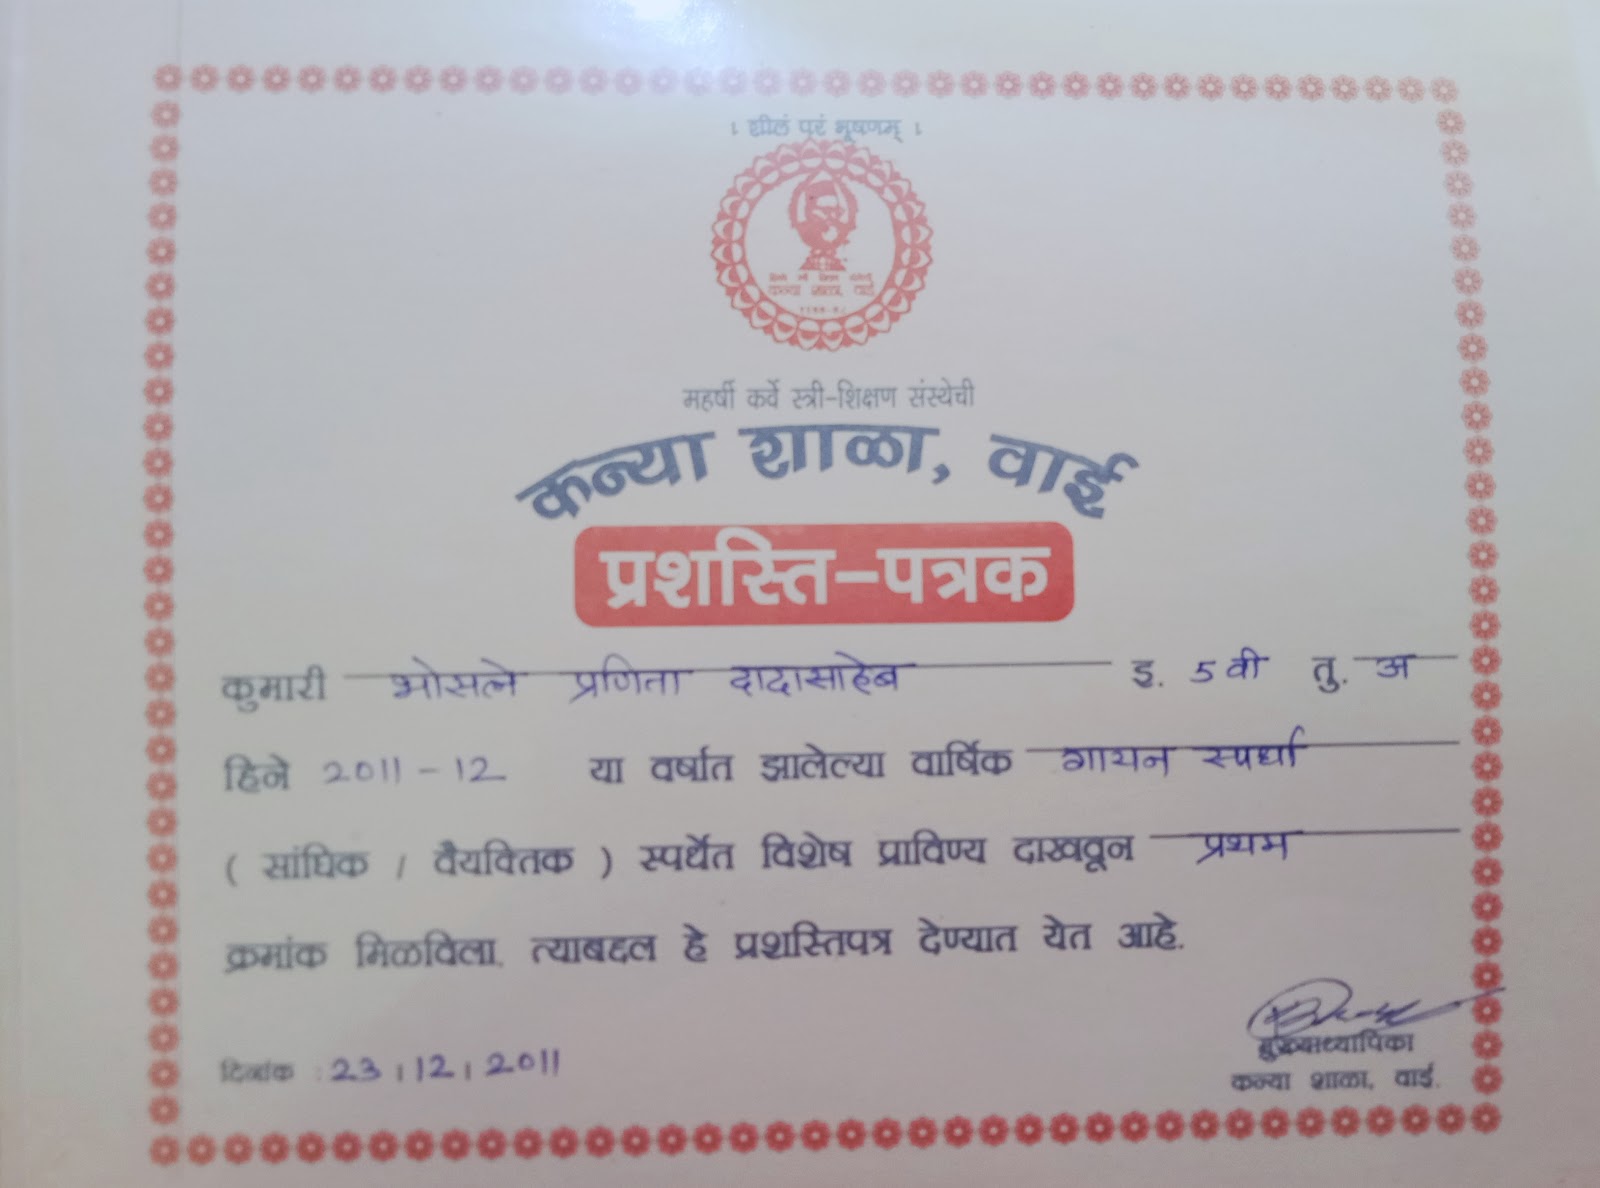 । शीलं परं भूषणम् ।
कन्या शाळा, वाई
महर्षी कर्वे स्त्री-शिक्षण संस्थेची
कन्या शाळा, वाई
प्रशस्ति-पत्रक
कुमारी भोसले प्रणिता दादासाहेब इ. 5 वी तु. अ
हिने 2011-12 या वर्षात झालेल्या वार्षिक गायन स्पर्धा
( सांघिक / वैयक्तिक ) स्पर्धेत विशेष प्राविण्य दाखवून प्रथम
क्रमांक मिळविला. त्याबद्दल हे प्रशस्तिपत्र देण्यात येत आहे.
मुख्याध्यापिका
दिनांक : 23।12।2011
कन्या शाळा, वाई.